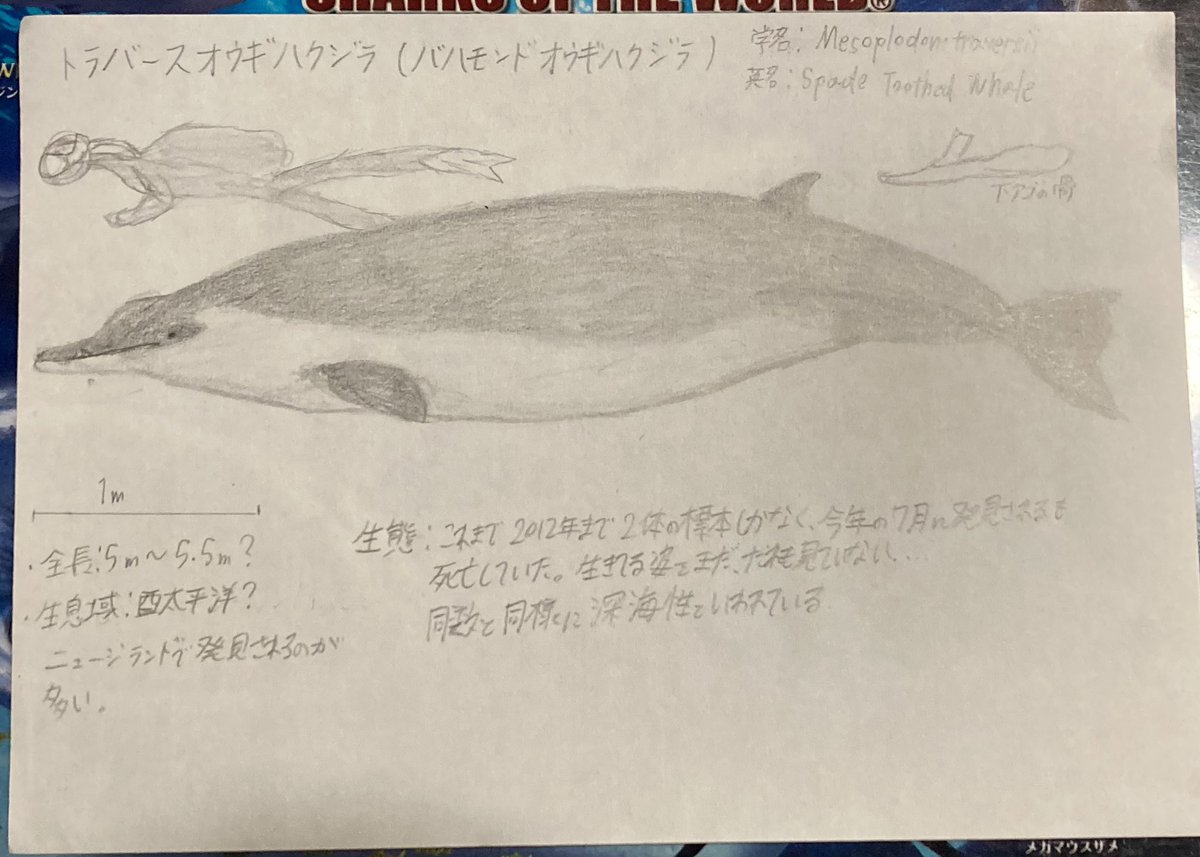 SHARKS OF THE WORLD®
トラバースオウギハクジラ(バハモンドオウギハクジラ)
学名:Mesoplodon traversii
英名:Spade Toothed Whale
下アゴの骨
1m
・全長:5m〜5.5m?
・生息域:西太平洋?
ニュージランドで発見されるのが
多い。
生態:これまで2012年まで2体の標本しかなく、今年の7月に発見されるも
死亡していた。生きてる姿をまだ、だれも見ていない...
同数と同様に深海性といわれている
メガマウスザメ